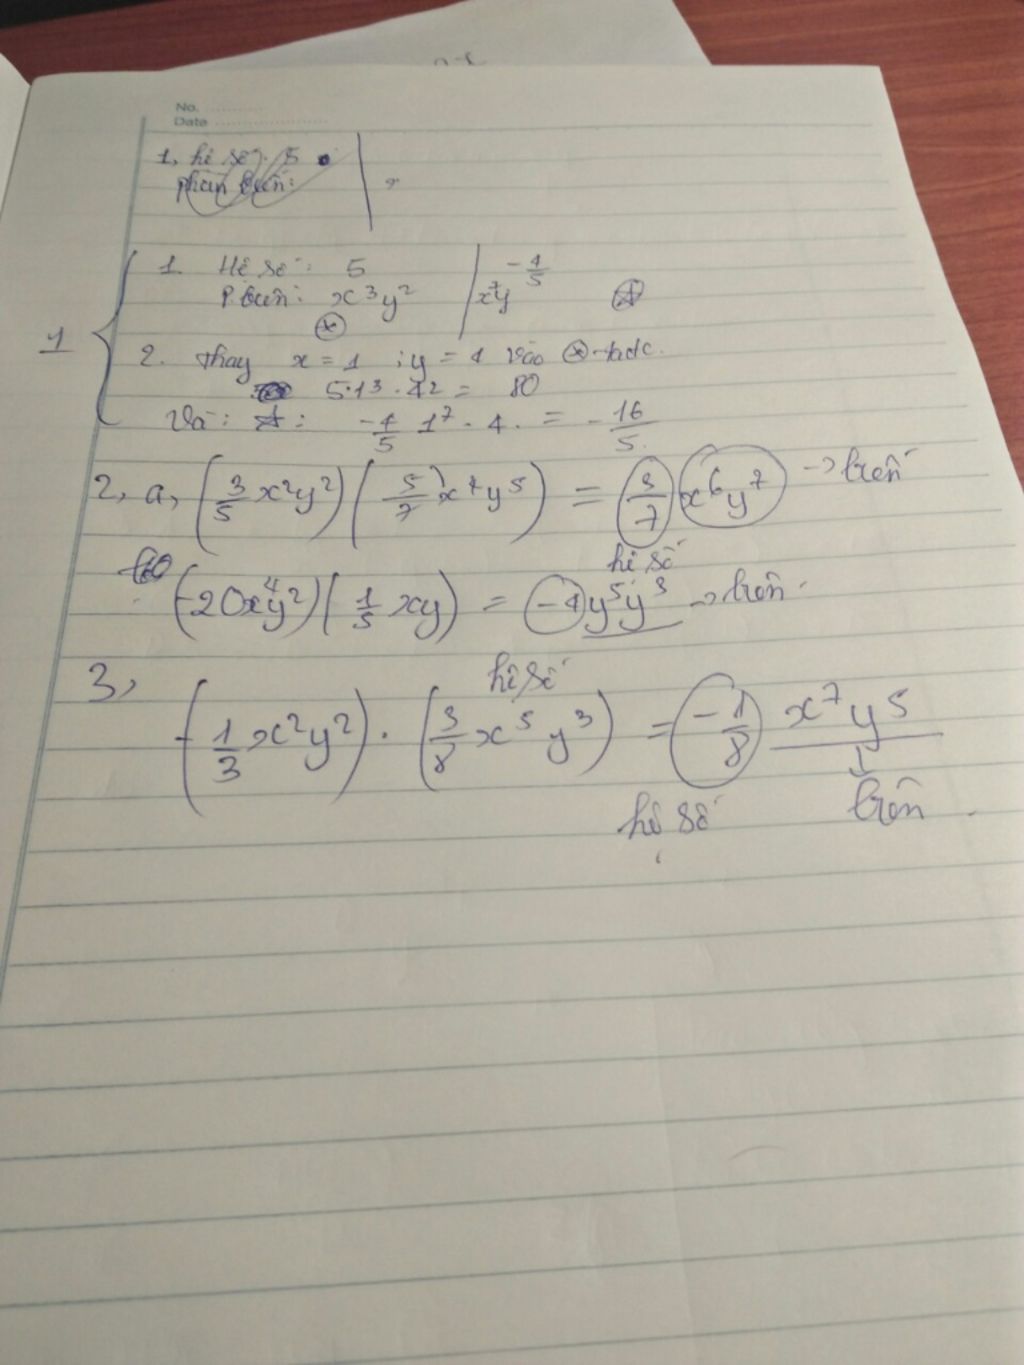 No. ............
Date ......................
1, hê số: 5
phần biến:
1. Hệ số: 5 | -4/5
P. biến: x³y² | x⁷y
1
2. Thay x = 1 ; y = 4 vào ⊛
5.1³.4² = 80
Và: ☆: -4/5 1⁷.4. = -16/5.
2, a, (3/5 x²y²)(5/7 x⁴y⁵) = 3/7 x⁶y⁷ → biến
hê số
(-20x⁴y²)(1/5 xy) = -4y⁵y³ → biến.
hê số
3, -(1/3 x²y²).(3/8 x⁵y³) = -1/8 x⁷y⁵
hê số biến